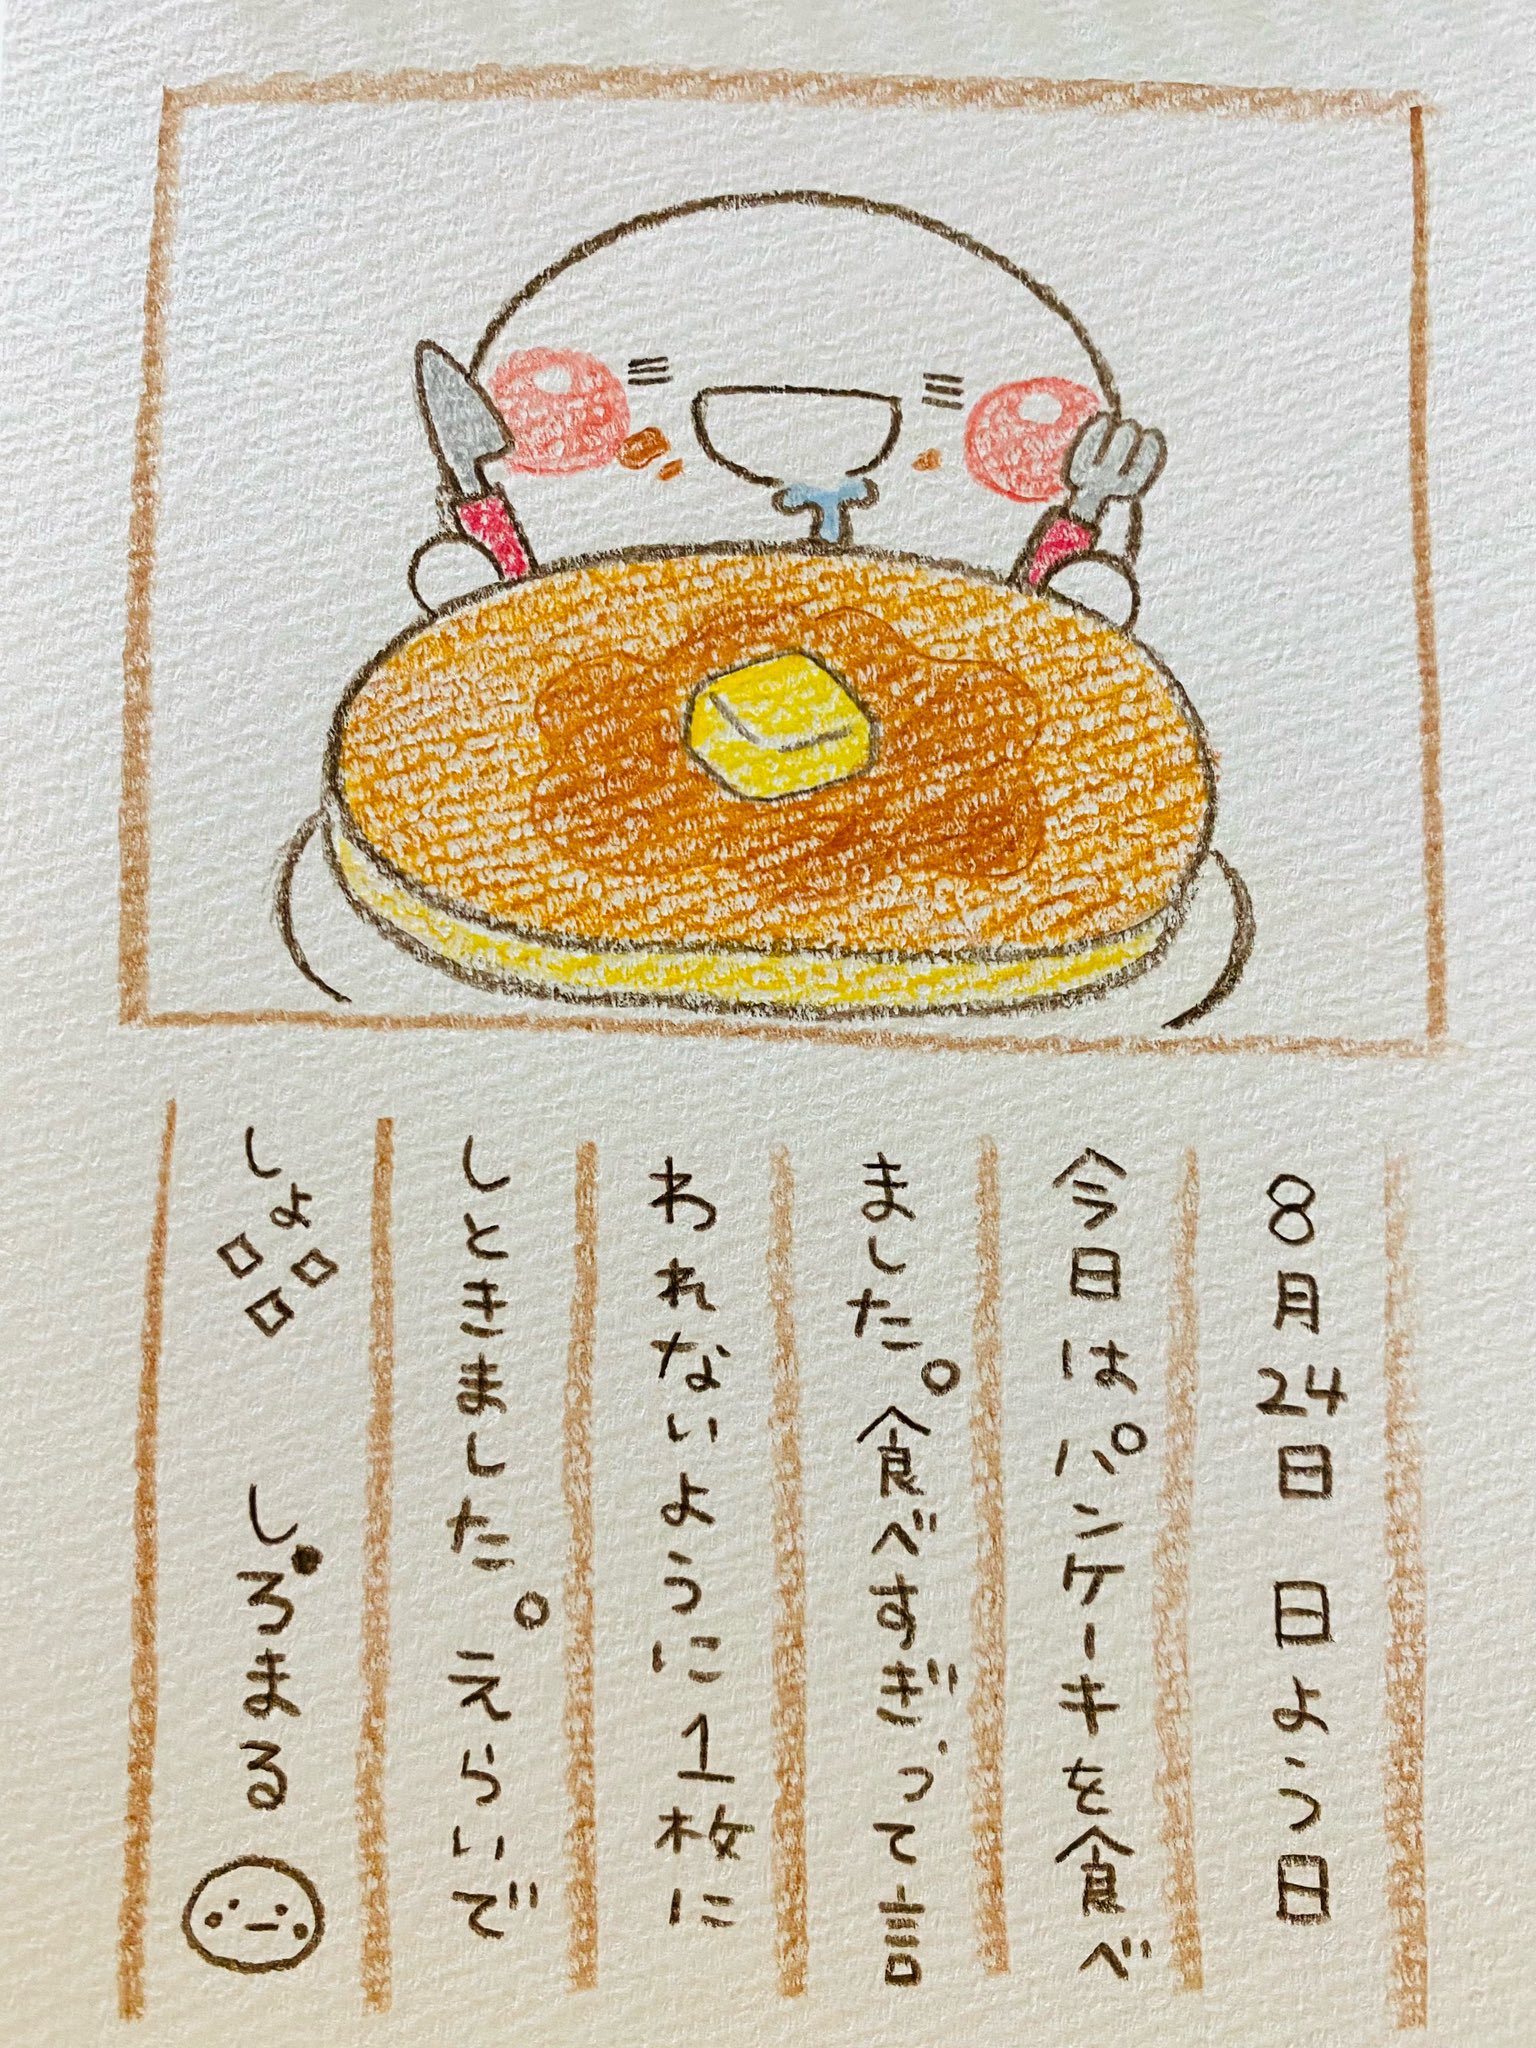 8月24日 日よう日
今日はパンケーキを食べ
ました。食べすぎって言
われないように1枚に
しときました。えらいで
しょ
しろまる